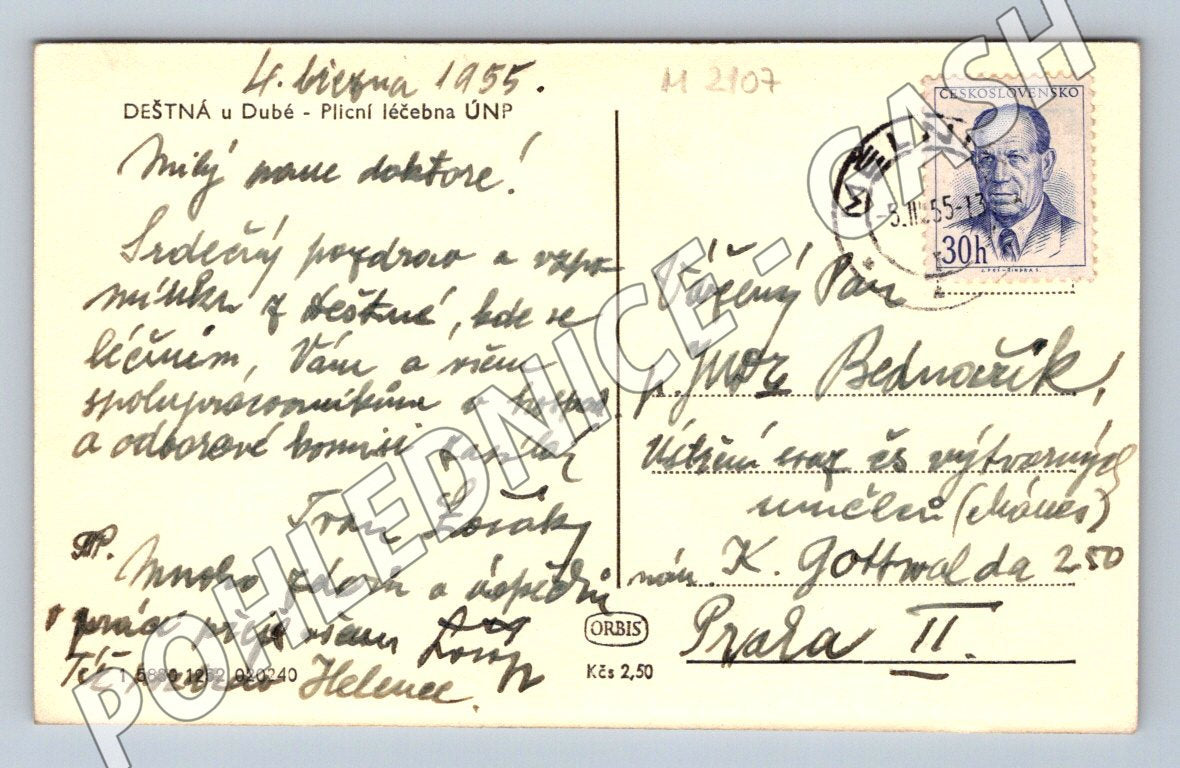 4. března 1955.
DEŠTNÁ u Dubé - Plicní léčebna ÚNP
Milý pane doktore!
Srdečný pozdrav a vzpo-
mínku z Deštné, kde se
léčíním, Vám a všem
spolupracovníkům
a odborové komisi
Fran
Mnoho zdaru a úspěchů
práci přeje všem
Též Helence.
1 5880 1252 020240
ORBIS
Kčs 2,50
M 2107
ČESKOSLOVENSKO
30h
MĚLNÍK
-5.III.55-13
Vážený Pan
p. JUDr Bednařík,
Ústřední svaz čs výtvarných
umělců (Mánes)
nám. K. Gottwalda 250
Praha II.
POHLEDNICE - CASH